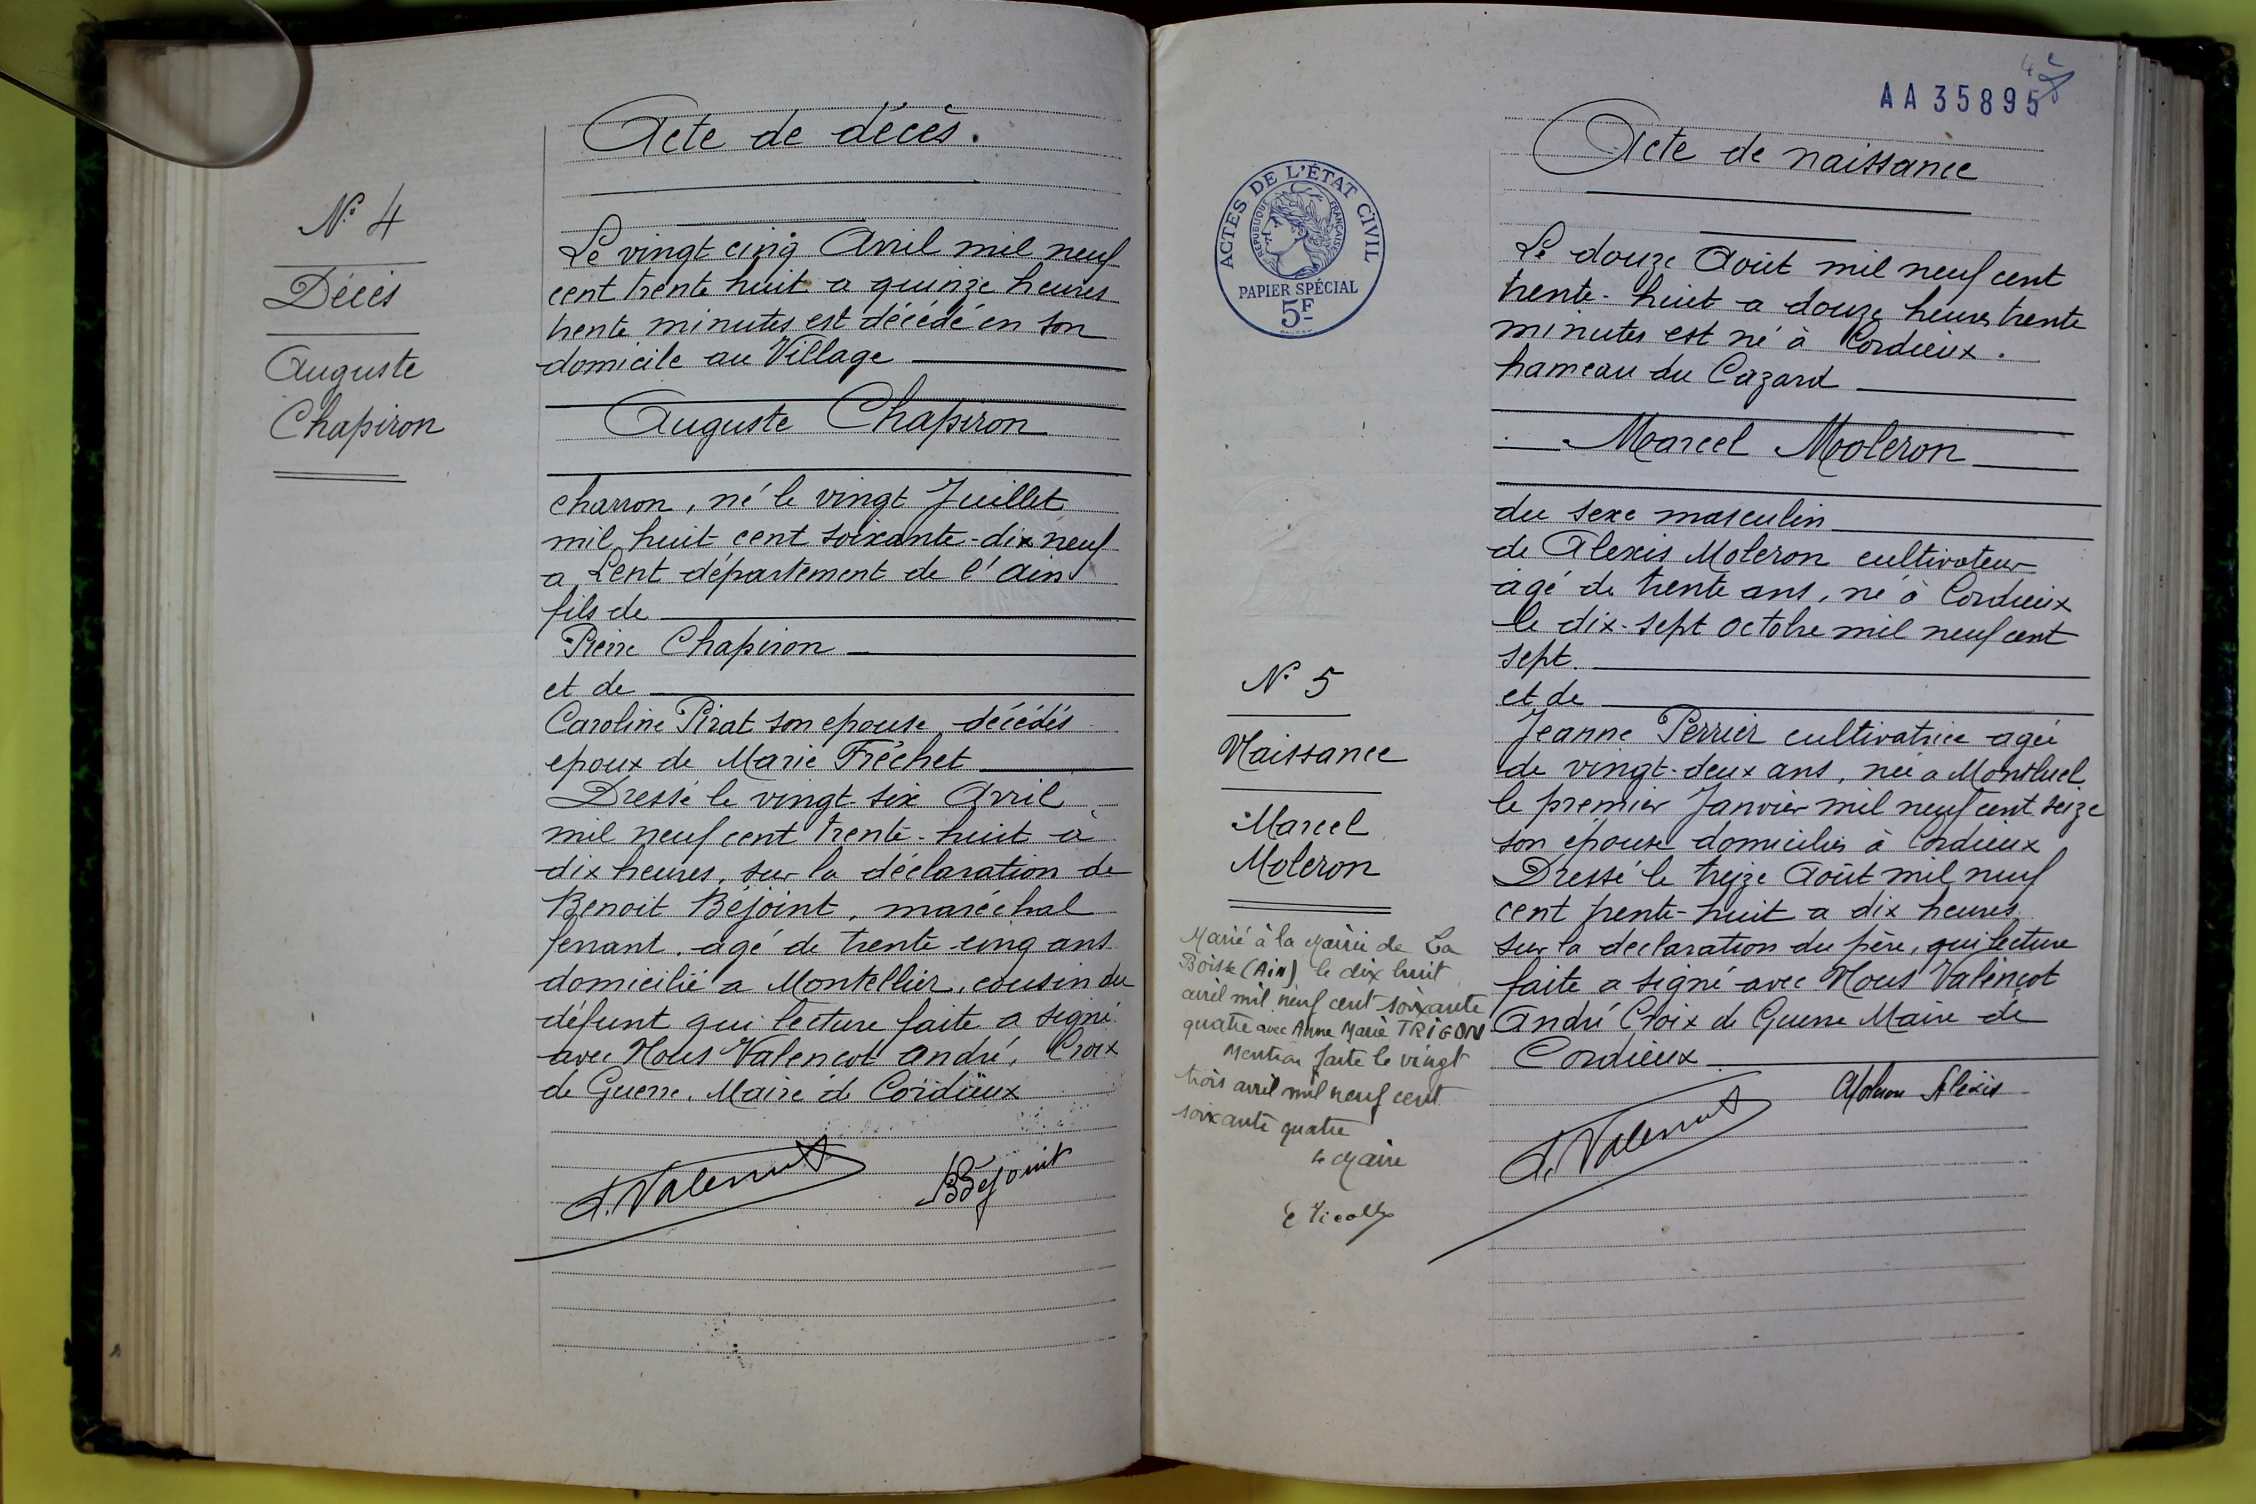 N° 4
Décès
Auguste
Chapiron
Acte de décès.
Le vingt cinq Avril mil neuf
cent trente huit a quinze heures
trente minutes est décédé en son
domicile au Village
Auguste Chapiron
charron, né le vingt Juillet
mil huit cent soixante-dix neuf
a Lent département de l'Ain
fils de
Pierre Chapiron
et de
Caroline Pirat son epouse décédés
epoux de Marie Fréchet
Dressé le vingt six Avril
mil neuf cent trente-huit à
dix heures, sur la déclaration de
Benoit Béjoint, maréchal
ferrant, agé de trente cinq ans
domicilié a Montellier, cousin du
défunt qui lecture faite a signé
avec Nous Valençot André, Croix
de Guerre, Maire de Cordieux
A. Valençot
B Béjoint
AA 35895
ACTES DE L'ÉTAT CIVIL
RÉPUBLIQUE FRANÇAISE
PAPIER SPÉCIAL
5F
N° 5
Naissance
Marcel
Moleron
Marié à la Mairie de La
Boisse (Ain) le dix huit
avril mil neuf cent soixante
quatre avec Anne Marie TRIGON
Mention faite le vingt
trois avril mil neuf cent
soixante quatre
Le Maire
Acte de naissance
Le douze Août mil neuf cent
trente-huit a douze heures trente
minutes est né à Cordieux.
hameau du Cazard
Marcel Moleron
du sexe masculin
de Alexis Moleron cultivateur
agé de trente ans, né à Cordieux
le dix-sept octobre mil neuf cent
sept.
et de
Jeanne Perrier cultivatrice agée
de vingt-deux ans, née a Montluel
le premier Janvier mil neuf cent seize
son épouse domiciliés à Cordieux
Dressé le treize Août mil neuf
cent trente-huit a dix heures
sur la declaration du père, qui lecture
faite a signé avec Nous Valençot
André Croix de Guerre Maire de
Cordieux
Moleron Alexis
A. Valençot